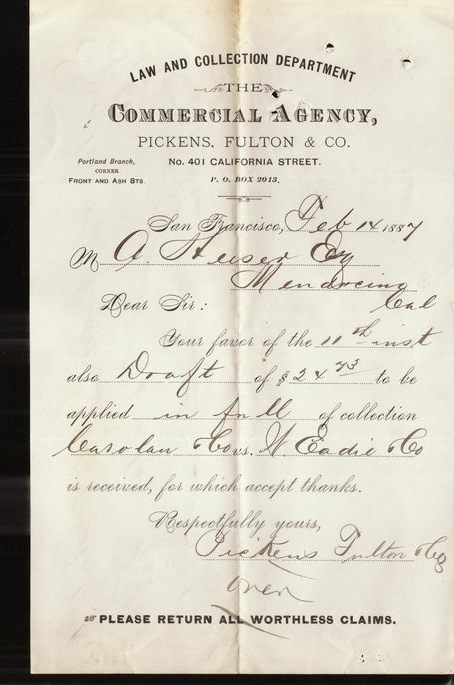 LAW AND COLLECTION DEPARTMENT
THE
COMMERCIAL AGENCY,
PICKENS, FULTON & CO.
Portland Branch,
CORNER
FRONT AND ASH STS.
No. 401 CALIFORNIA STREET.
P. O. BOX 2013.
San Francisco, Feb 14 1887
M A. Heeser Esq
Mendocino
Cal
Dear Sir:
Your favor of the 11th inst
also Draft of $24 43 to be
applied in full of collection
Carolan & Co vs. W. Eadie & Co
is received, for which accept thanks.
Respectfully yours,
Pickens Fulton & Co
over
PLEASE RETURN ALL WORTHLESS CLAIMS.